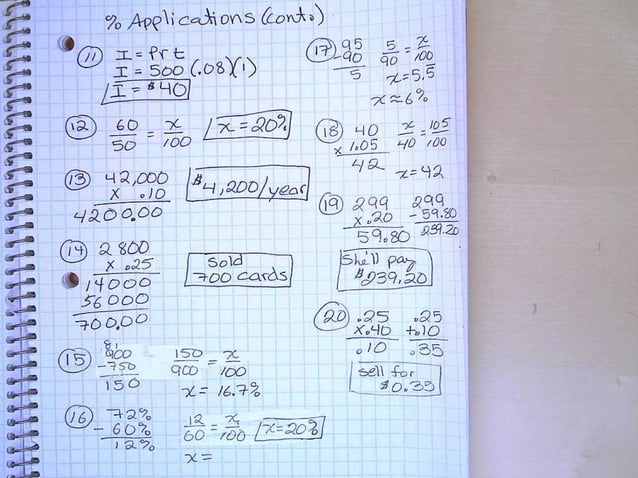 % Applications (cont.)
11 I = Prt
I = 500 (.08)(1)
I = $40
12 60/50 = x/100 x = 20%
13 42,000
x .10
4200.00
$4,200/year
14 2800
x .25
14000
56000
700.00
Sold
700 cards
15 81
900
-750
150
150/900 = x/100
x = 16.7%
16 72%
- 60%
12%
12/60 = x/100 x = 20%
x =
17 95
-90
5
5/90 = x/100
x = 5.5
x ≈ 6%
18 40
x 1.05
42
x/40 = 105/100
x = 42
19 299
x .20
59.80
299
- 59.80
239.20
She'll pay
$239.20
20 .25
x .40
.10
.25
+.10
.35
sell for
$0.35